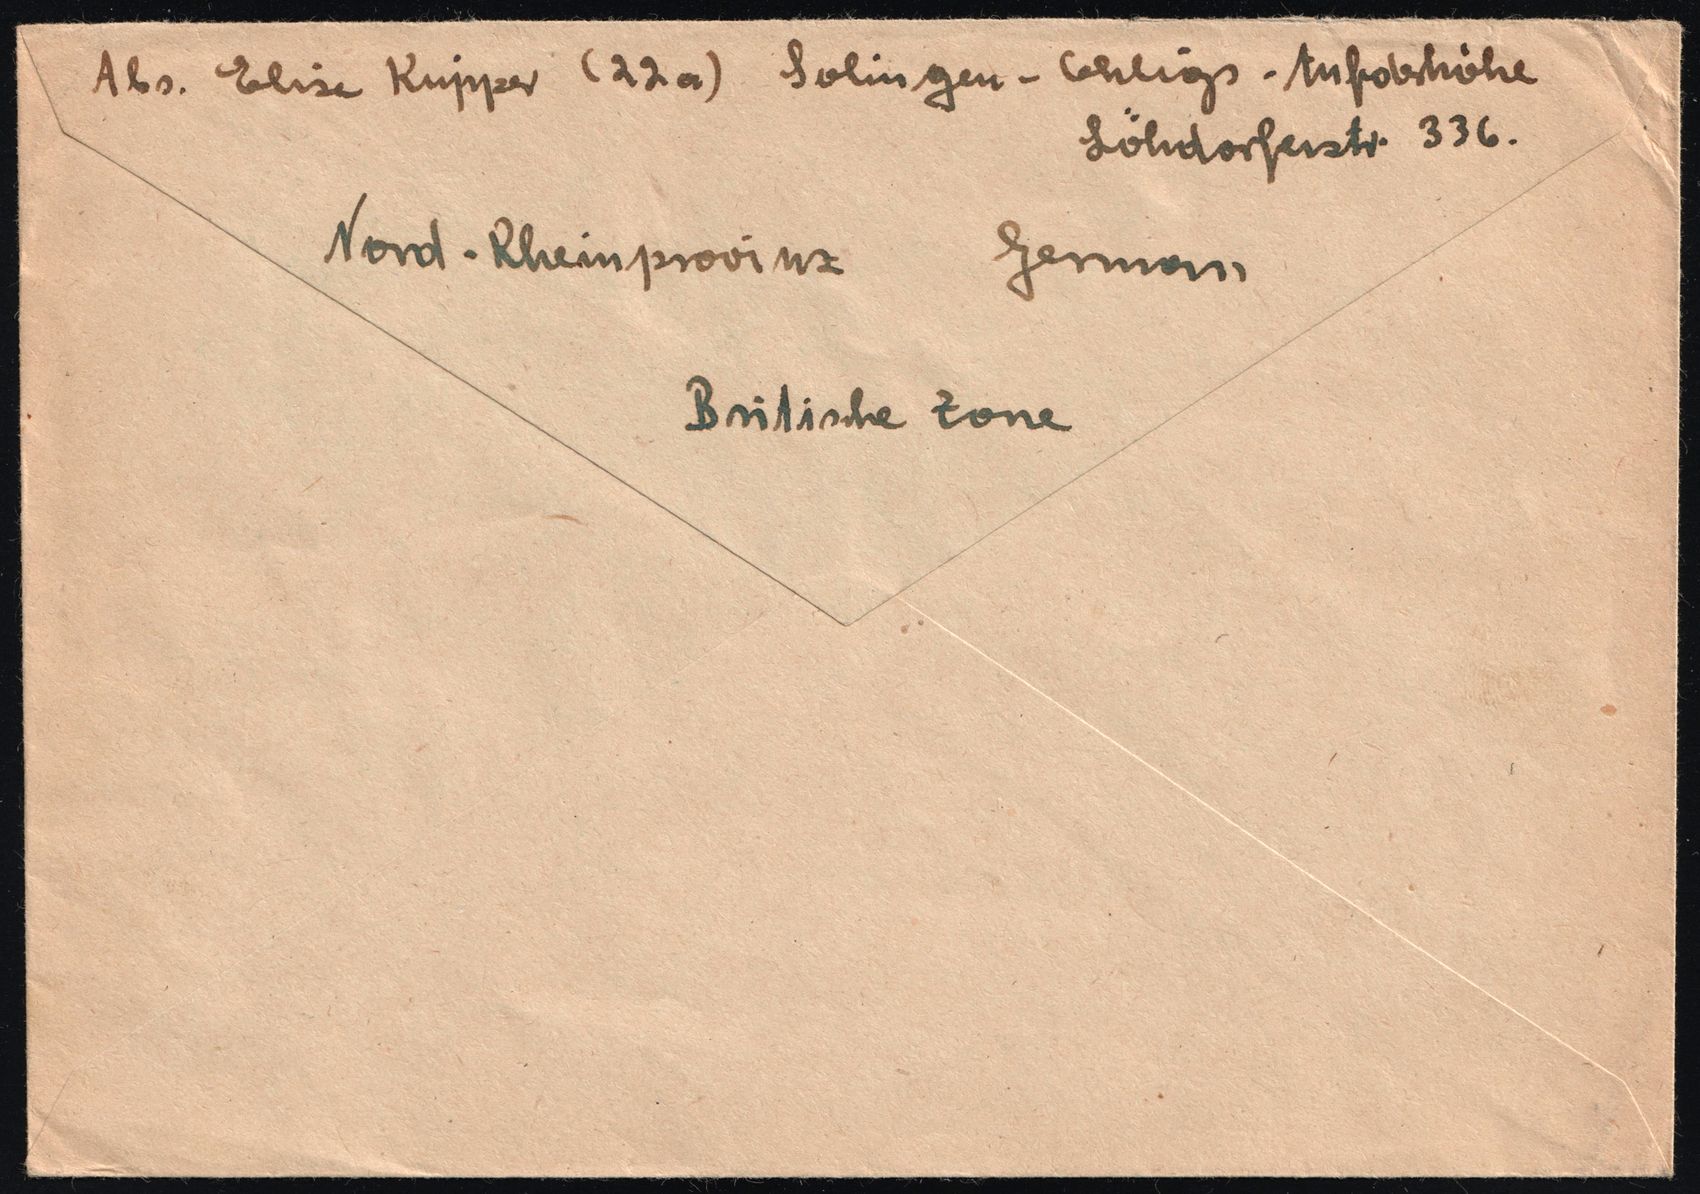 Abs. Elise Kupper (22a) Solingen - Ohligs - Aufderhöhe
Löhdorferstr. 336.
Nord - Rheinprovinz German
Britische Zone